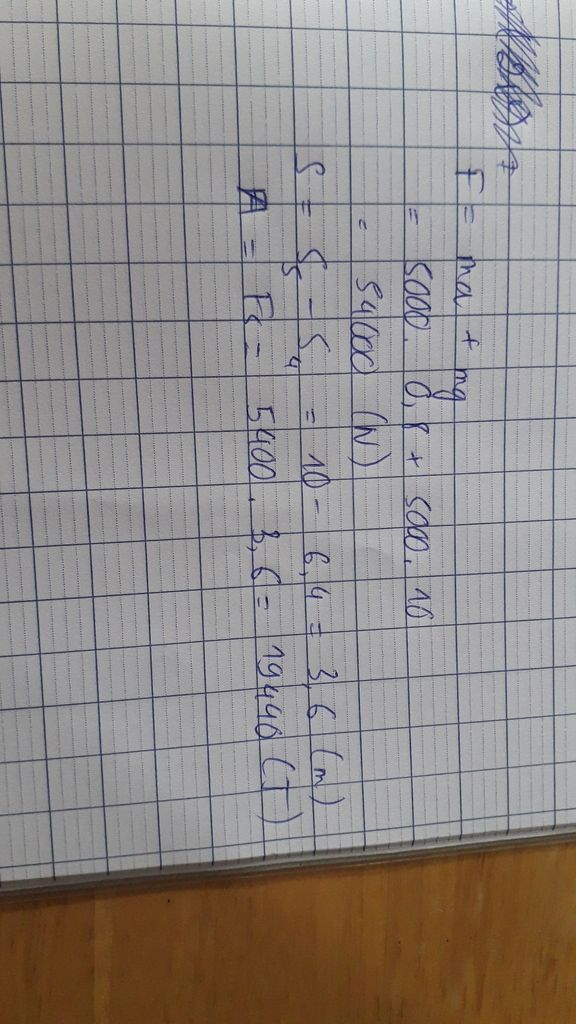 F = ma + mg
= 5000. 0,8 + 5000. 10
= 54000 (N)
S = S5 - S4 = 10 - 6,4 = 3,6 (m)
A = Fs = 5400. 3,6 = 19440 (J)